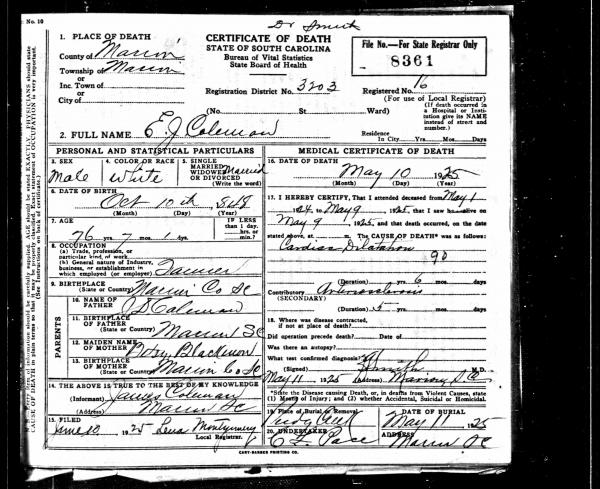 No. 10
Dr Smith
1. PLACE OF DEATH
County of Marion
Township of Marion
or
Inc. Town of
or
City of
CERTIFICATE OF DEATH
STATE OF SOUTH CAROLINA
Bureau of Vital Statistics
State Board of Health
File No.—For State Registrar Only
8361
Registration District No. 3203
Registered No. 16
(For use of Local Registrar)
(No. St Ward)
(If death occurred in a Hospital or Institution give its NAME instead of street and number.)
2. FULL NAME E J Coleman
Residence
In City Yrs. Mos. Days
PERSONAL AND STATISTICAL PARTICULARS
3. SEX
Male
4. COLOR OR RACE
White
5. SINGLE
MARRIED
WIDOWED
OR DIVORCED
(Write the word)
Married
6. DATE OF BIRTH
Oct 10th, 848
(Month) (Day) (Year)
7. AGE
76 yrs. 7 mos. 1 dys.
IF LESS than 1 day, hrs. or min.?
8. OCCUPATION
(a) Trade, profession, or particular kind of work
(b) General nature of Industry, business, or establishment in which employed (or employer) Farmer
9. BIRTHPLACE
(State or Country) Marion Co SC
PARENTS
10. NAME OF FATHER J D Coleman
11. BIRTHPLACE OF FATHER
(State or Country) Marion SC
12. MAIDEN NAME OF MOTHER Betsy Blackmon
13. BIRTHPLACE OF MOTHER
(State or Country) Marion Co SC
14. THE ABOVE IS TRUE TO THE BEST OF MY KNOWLEDGE
(Informant) James Coleman
(Address) Marion SC
15. FILED
June 10 1925 Lena Montgomery
Local Registrar.
MEDICAL CERTIFICATE OF DEATH
16. DATE OF DEATH
May 10 1925
(Month) (Day) (Year)
17. I HEREBY CERTIFY, That I attended deceased from May 1
1924 to May 9 1925, that I saw h alive on
May 9 1925, and that death occurred, on the date
stated above, at m. The CAUSE OF DEATH* was as follows:
Cardiac Dilatation
90
(Duration) yrs. 6 mos. days
Contributory Arteriosclerosis
(SECONDARY)
(Duration) 5 yrs. mos. days
18. Where was disease contracted, if not at place of death?
Did operation precede death? Date of
Was there an autopsy?
What test confirmed diagnosis?
(Signed) Smith M.D.
May 11 1925 (Address) Marion, S.C.
*State the Disease Causing Death, or, in deaths from Violent Causes, state (1) Means of Injury; and (2) whether Accidental, Suicidal or Homicidal.
19. Place of Burial or Removal
DATE OF BURIAL
May 11 1925
20. UNDERTAKER
C F Pace
ADDRESS
Marion SC
CARY-BARBER PRINTING CO.